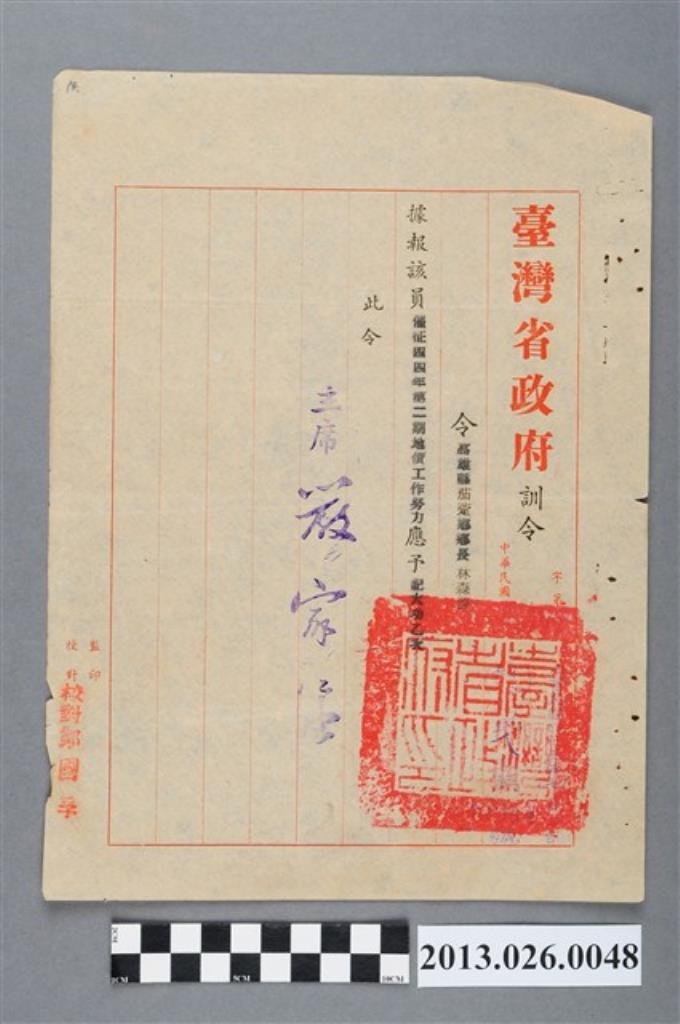 臺灣省政府訓令
字第
中華民國
令高雄縣茄萣鄉鄉長林森源
據報該員催征四四年第二期地價工作努力應予記大功乙次
此令
主席嚴家淦
臺灣省政府印
監印
校對
校對鄒國
2013.026.0048
0CM
5CM
10CM